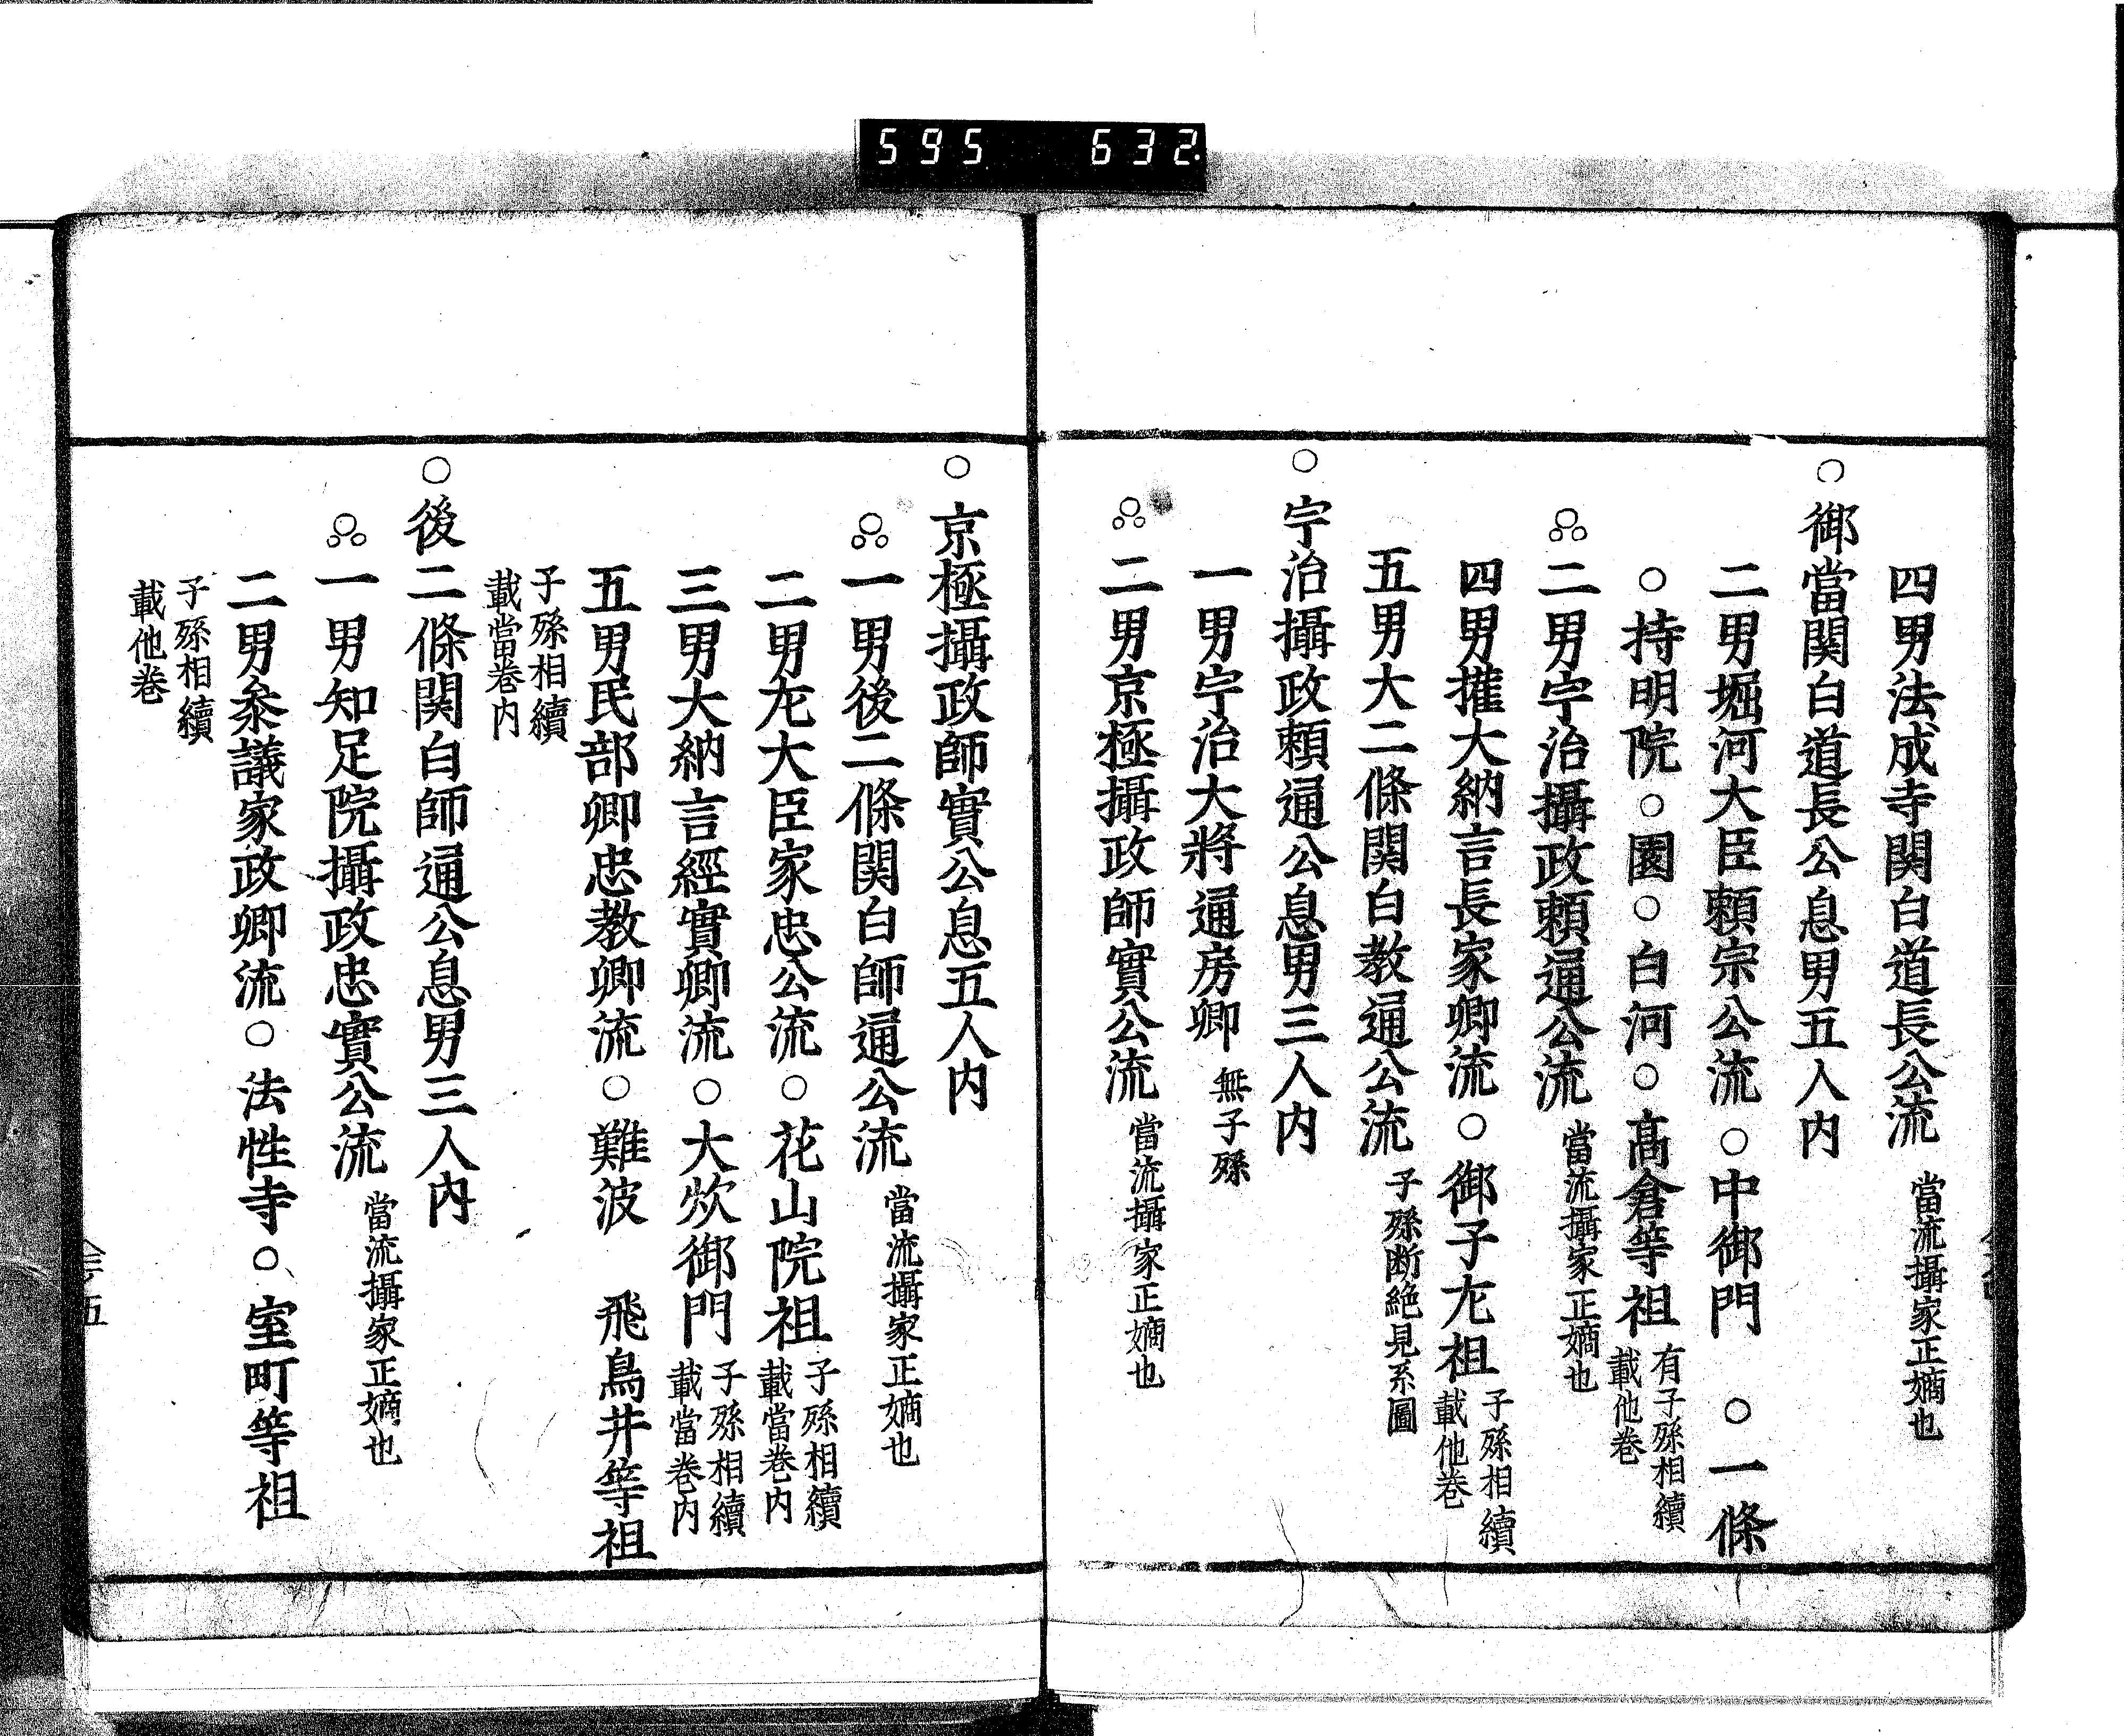 595 632
四男法成寺関白道長公流 當流攝家正嫡也
○御當関白道長公息男五人内
二男堀河大臣頼宗公流○中御門○一條
○持明院○園○白河○髙倉等祖 有子孫相續
載他巻
二男宇治攝政頼通公流 當流攝家正嫡也
四男權大納言長家卿流○御子左祖 子孫相續
載他巻
五男大二條関白教通公流 子孫断絶見系圖
○宇治攝政頼通公息男三人内
一男宇治大將通房卿 無子孫
二男京極攝政師實公流 當流攝家正嫡也
○京極攝政師實公息五人内
一男後二條関白師通公流 當流攝家正嫡也
二男左大臣家忠公流○花山院祖 子孫相續
載當巻内
三男大納言經實卿流○大炊御門 子孫相續
載當巻内
五男民部卿忠教卿流○難波 飛鳥井等祖
子孫相續
載當巻内
○後二條関白師通公息男三人内
一男知足院攝政忠實公流 當流攝家正嫡也
二男叅議家政卿流○法性寺○室町等祖
子孫相續
載他巻
五